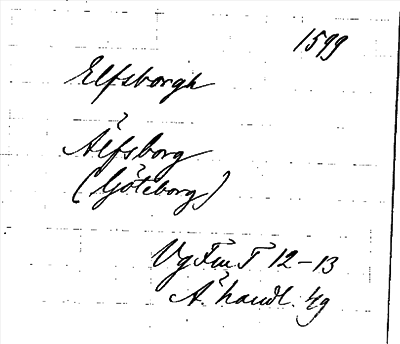 1599
Elfsborgh
Älfsborg
(Göteborg)
VgFmT 12-13
Ä. handl. 49